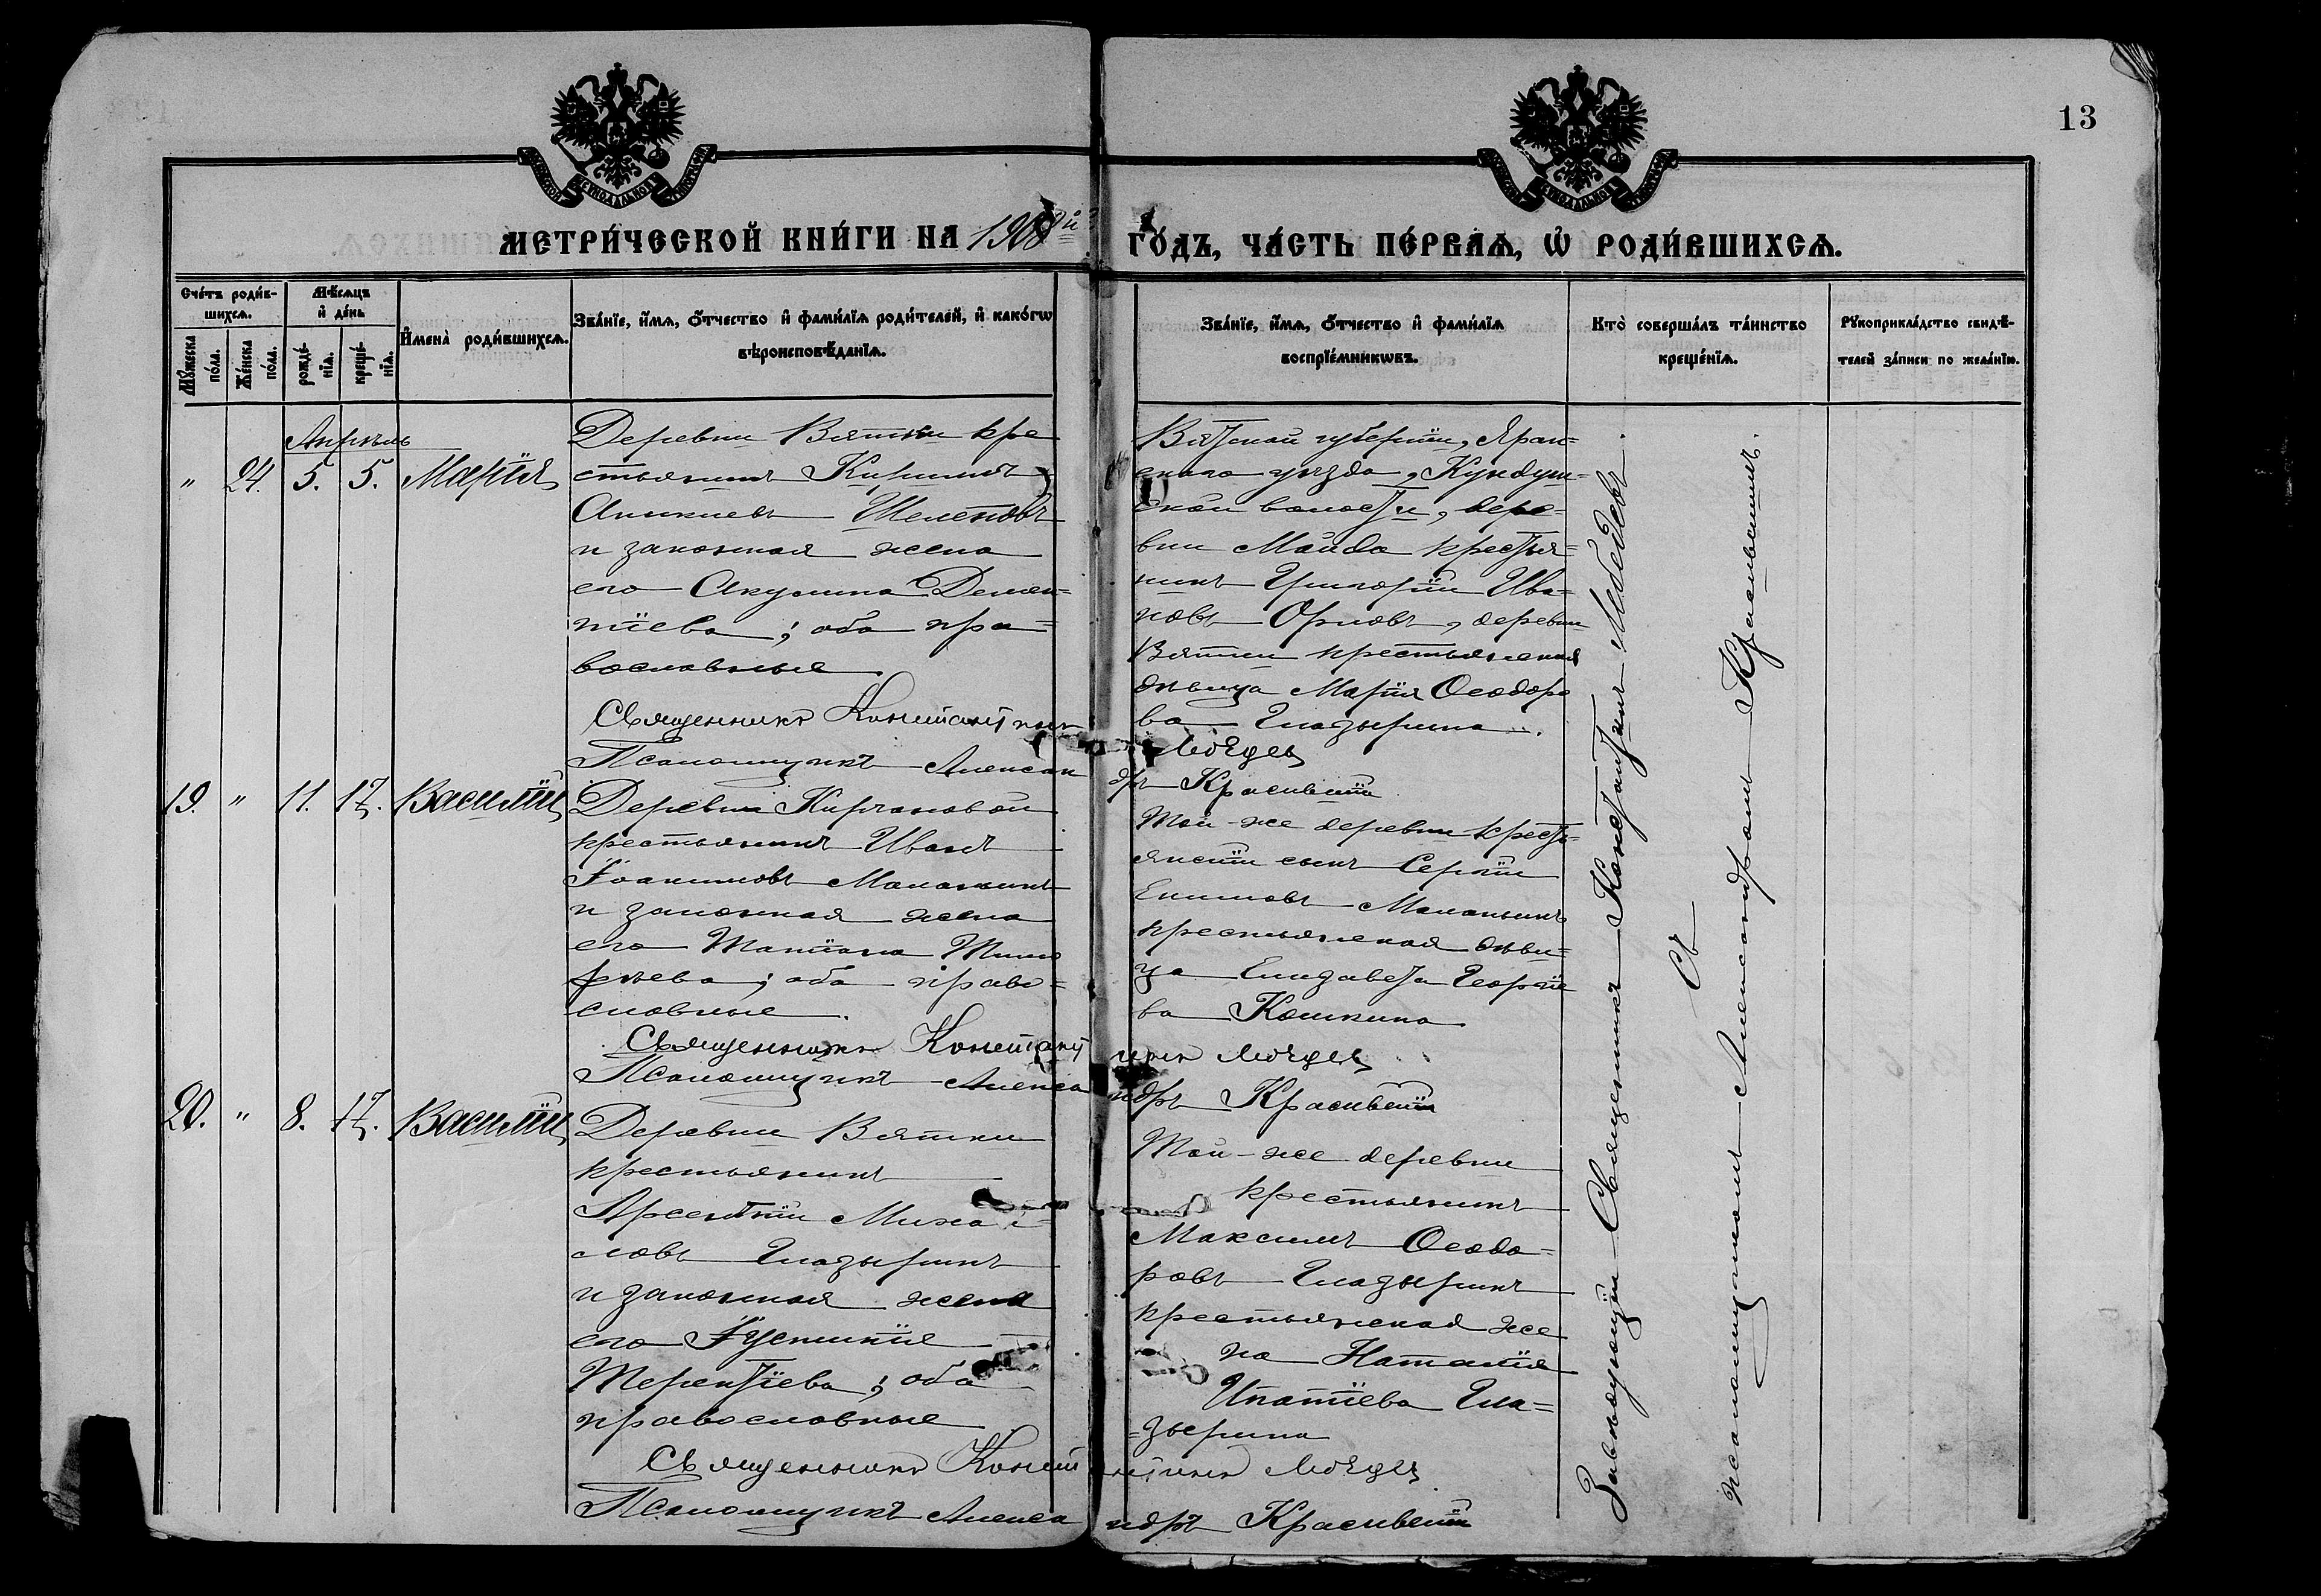 13
МЕТРИ́ЧЕСКОЙ КНИ́ГИ НА 1908й ГО́ДЪ, ЧА́СТЬ ПЕ́РВАѦ, Ѡ҆ РОДИ́ВШИХСѦ.
Сче́тъ роди́вшихсѧ.
Мꙋ́жеска по́ла.
Же́нска по́ла.
Мѣ́сѧцъ и҆ де́нь
рожде́нїѧ.
креще́нїѧ.
И҆мена̀ роди́вшихсѧ.
Зва́нїе, и҆́мѧ, ѻ҆́тчество и҆ фами́лїѧ роди́телей, и҆ како́гѡ
вѣроисповѣ́данїѧ.
Зва́нїе, и҆́мѧ, ѻ҆́тчество и҆ фами́лїѧ
воспрїе́мникѡвъ.
Кто̀ соверша́лъ та́инство
креще́нїѧ.
Рꙋкоприкла́дство свидѣ́-
телей за́писи по жела́нїю.
Апрѣль
" 24. 5. 5. Марія
Деревни Вятки кре
стьянинъ Кириллъ
Аникіевъ Шеленовъ
и законная жена
его Акулина Демен=
тіева; оба пра=
вославные.
Священникъ Константинъ Лебедев
Псаломщикъ Александръ Красивскій
Вятской губерніи, Яран=
скаго уѣзда, Кундуш=
ской волости, дере=
вни Майда крестья=
нинъ Григорій Ива=
новъ Орловъ, деревни
Вятки крестьянская
дѣвица Марія Ѳеодоро
ва Глазырина.
19. " 11. 17. Василій
Деревни Кирчановой
крестьянинъ Иванъ
Іоакимовъ Маланьинъ
и законная жена
его Татіана Тимо
феева; оба право=
славные.
Священникъ Константинъ Лебедев
Псаломщикъ Александръ Красивскій
Той-же деревни кресть=
янскій сынъ Сергій
Екимовъ Маланьинъ
крестьянская дѣви=
ца Елизавета Георгіе
ва Кошкина.
20. " 8. 17. Василій
Деревни Вятки
крестьянинъ
Арсентій Михай=
ловъ Глазыринъ
и законная жена
его Іустинія
Терентіева; оба
православные
Священникъ Константинъ Лебедев
Псаломщикъ Александръ Красивскій
Той-же деревни
крестьянинъ
Максимъ Ѳеодо=
ровъ Глазыринъ
крестьянская же
на Наталія
Ипатіева Гла=
=зырина
Завѣдующій Священникъ Константинъ Лебедевъ.
Съ
псаломщикомъ Александромъ Красивскимъ.